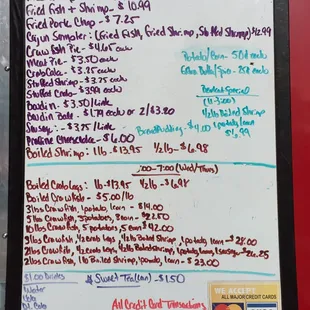 Fried Fish + Shrimp - $10.99
Fried Pork Chop - $7.25
Cajun Sampler: (Fried Fish, Fried Shrimp, Stuffed Shrimp) $12.99
Crawfish Pie - $4.65 each
Meat Pie - $3.50 each
Crab Cake - $3.25 each
Stuffed Shrimp - $3.75 each
Stuffed Crab - $3.99 each
Boudin - $3.50/link
Boudin Balls - $1.79 each or 2/$3.20
Sausage - $3.75/link
Praline Cheesecake - $6.00
Boiled Shrimp: 1lb - $13.95 1/2lb - $6.98
Potato/Corn - 50¢ each
Extra Butter/Spice - 25¢ each
Special
(11-3:00)
1/2lb Boiled Shrimp
1 potato, 1 corn
$6.99
Bread Pudding - $4.00
:00-7:00 (Wed/Thurs)
Boiled Crab Legs: lb - $13.95 1/2lb - $6.98
Boiled Crawfish - $5.00/lb
3lbs Crawfish, 1 potato, 1 corn - $14.00
5lbs Crawfish, 3 potatoes, 3 corn - $22.50
10lbs Crawfish, 5 potatoes, 5 corn - $42.00
Crawfish, 1/2 Crab Legs, 1/2lb Boiled Shrimp, 1 potato, 1 corn - $28.00
2lbs Crawfish, 1/2 Crab Legs, 1/2lb Boiled Shrimp, 1 potato, 1 corn, 1 sausage - $26.25
2lbs Crawfish, 1lb Boiled Shrimp, 1 potato, 1 corn - $23.00
$1.00 Drinks
Water
Coke
Dt. Coke
Sweet Tea (can) - $1.50
All Credit Card Transactions
WE ACCEPT
ALL MAJOR CREDIT CARDS